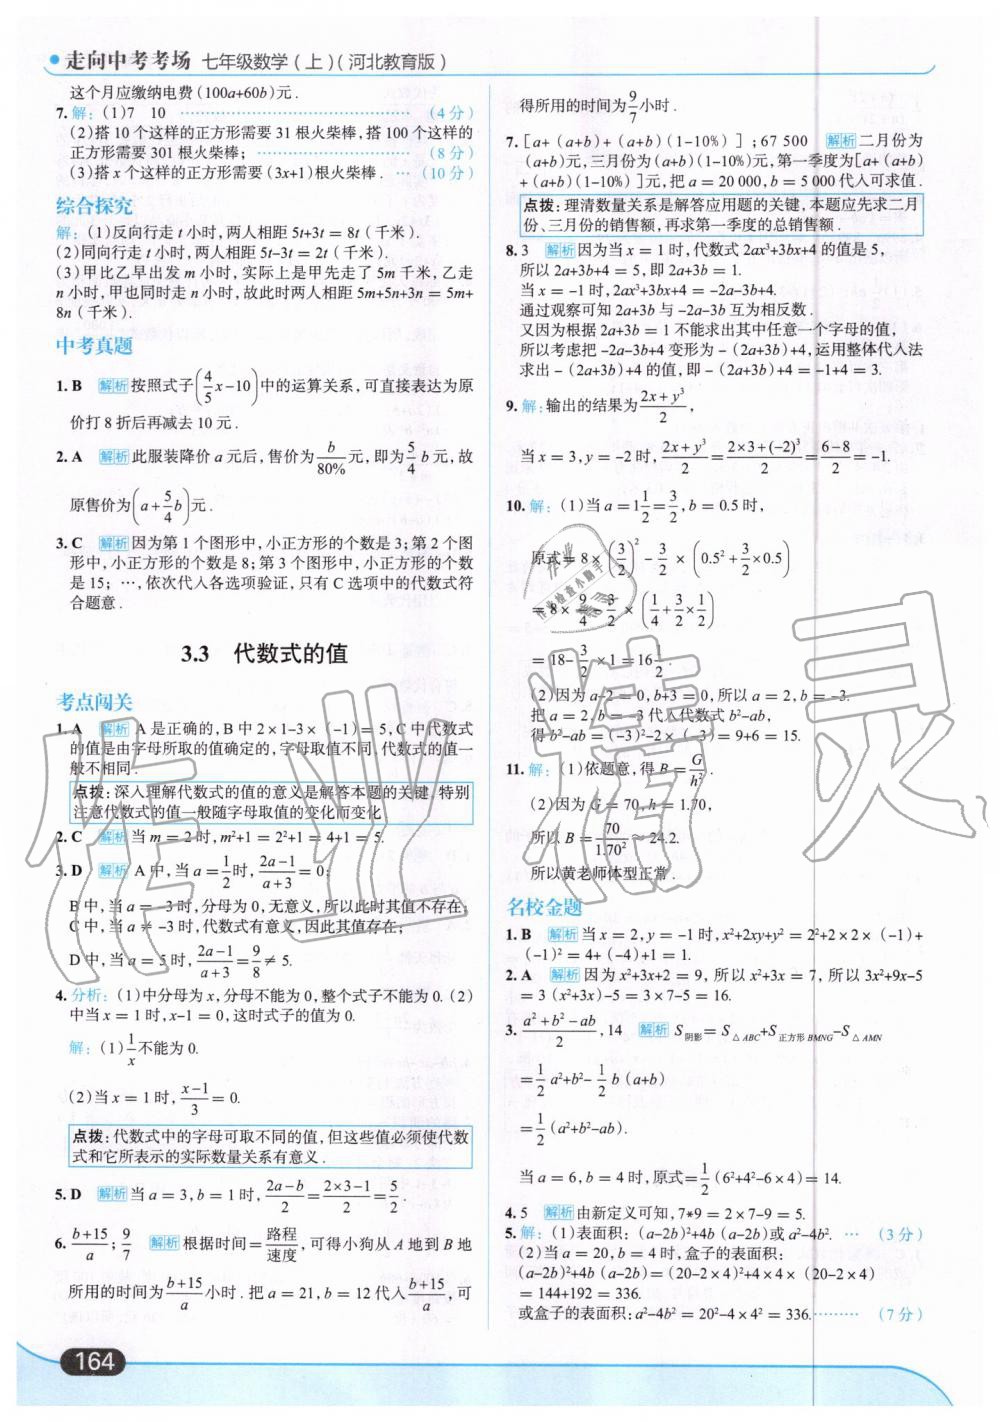 走向中考考场 七年级数学(上)(河北教育版)
这个月应缴纳电费(100a+60b)元.
7.解:(1)7 10 …(4分)
(2)搭10个这样的正方形需要31根火柴棒,搭100个这样的
正方形需要301根火柴棒; …(8分)
(3)搭x个这样的正方形需要(3x+1)根火柴棒. …(10分)
综合探究
解:(1)反向行走t小时,两人相距5t+3t=8t(千米).
(2)同向行走t小时,两人相距5t-3t=2t(千米).
(3)甲比乙早出发m小时,实际上是甲先走了5m千米,乙走
n小时,甲也同时走n小时,故此时两人相距5m+5n+3n=5m+
8n(千米).
中考真题
1.B 解析 按照式子(4/5x-10)中的运算关系,可直接表达为原
价打8折后再减去10元.
2.A 解析 此服装降价a元后,售价为b/80%元,即为5/4b元,故
原售价为(a+5/4b)元.
3.C 解析 因为第1个图形中,小正方形的个数是3;第2个图
形中,小正方形的个数是8;第3个图形中,小正方形的个数
是15;…,依次代入各选项验证,只有C选项中的代数式符
合题意.
3.3 代数式的值
考点闯关
1.A 解析 A是正确的,B中2×1-3×(-1)=5,C中代数式
的值是由字母所取的值确定的,字母取值不同,代数式的值一
般不相同.
点拨:深入理解代数式的值的意义是解答本题的关键,特别
注意代数式的值一般随字母取值的变化而变化
2.C 解析 当m=2时,m²+1=2²+1=4+1=5.
3.D 解析 A中,当a=1/2时,(2a-1)/(a+3)=0;
B中,当a=-3时,分母为0,无意义,所以此时其值不存在;
C中,当a≠-3时,代数式有意义,因此其值存在;
D中,当a=5时,(2a-1)/(a+3)=9/8≠5.
4.分析:(1)中分母为x,分母不能为0,整个式子不能为0.(2)
中当x=1时,x-1=0,这时式子的值为0.
解:(1)1/x不能为0.
(2)当x=1时,(x-1)/3=0.
点拨:代数式中的字母可取不同的值,但这些值必须使代数
式和它所表示的实际数量关系有意义.
5.D 解析 当a=3,b=1时,(2a-b)/2=(2×3-1)/2=5/2.
6.(b+15)/a;9/7 解析 根据时间=路程/速度,可得小狗从A地到B地
所用的时间为(b+15)/a小时.把a=21,b=12代入(b+15)/a,可
得所用的时间为9/7小时.
7.[a+(a+b)+(a+b)(1-10%)];67 500 解析 二月份为
(a+b)元,三月份为(a+b)(1-10%)元,第一季度为[a+(a+b)
+(a+b)(1-10%)]元,把a=20 000,b=5 000代入可求值.
点拨:理清数量关系是解答应用题的关键,本题应先求二月
份、三月份的销售额,再求第一季度的总销售额.
8.3 解析 因为当x=1时,代数式2ax³+3bx+4的值是5,
所以2a+3b+4=5,即2a+3b=1.
当x=-1时,2ax³+3bx+4=-2a-3b+4.
通过观察可知2a+3b与-2a-3b互为相反数.
又因为根据2a+3b=1不能求出其中任意一个字母的值,
所以考虑把-2a-3b+4变形为-(2a+3b)+4,运用整体代入法
求出-(2a+3b)+4的值,即-(2a+3b)+4=-1+4=3.
9.解:输出的结果为(2x+y³)/2,
当x=3,y=-2时,(2x+y³)/2=(2×3+(-2)³)/2=(6-8)/2=-1.
10.解:(1)当a=1 1/2=3/2,b=0.5时,
原式=8×(3/2)²-3/2×(0.5²+3/2×0.5)
=8×9/4-3/2×(1/4+3/2×1/2)
=18-3/2×1=16 1/2.
(2)因为a-2=0,b+3=0,所以a=2,b=-3.
把a=2,b=-3代入代数式b²-ab,
得b²-ab=(-3)²-2×(-3)=9+6=15.
11.解:(1)依题意,得B=G/h².
(2)因为G=70,h=1.70,
所以B=70/1.70²≈24.2.
所以黄老师体型正常.
名校金题
1.B 解析 当x=2,y=-1时,x²+2xy+y²=2²+2×2×(-1)+
(-1)²=4+(-4)+1=1.
2.A 解析 因为x²+3x+2=9,所以x²+3x=7,所以3x²+9x-5
=3(x²+3x)-5=3×7-5=16.
3.(a²+b²-ab)/2,14 解析 S阴影=S△ABC+S正方形BMNG-S△AMN
=1/2a²+b²-1/2b(a+b)
=1/2(a²+b²-ab).
当a=6,b=4时,原式=1/2(6²+4²-6×4)=14.
4.5 解析 由新定义可知,7*9=2×7-9=5.
5.解:(1)表面积:(a-2b)²+4b(a-2b)或a²-4b². …(3分)
(2)当a=20,b=4时,盒子的表面积:
(a-2b)²+4b(a-2b)=(20-2×4)²+4×4×(20-2×4)
=144+192=336.
或盒子的表面积:a²-4b²=20²-4×4²=336. …(7分)
164
作业精灵
作业检查小助手